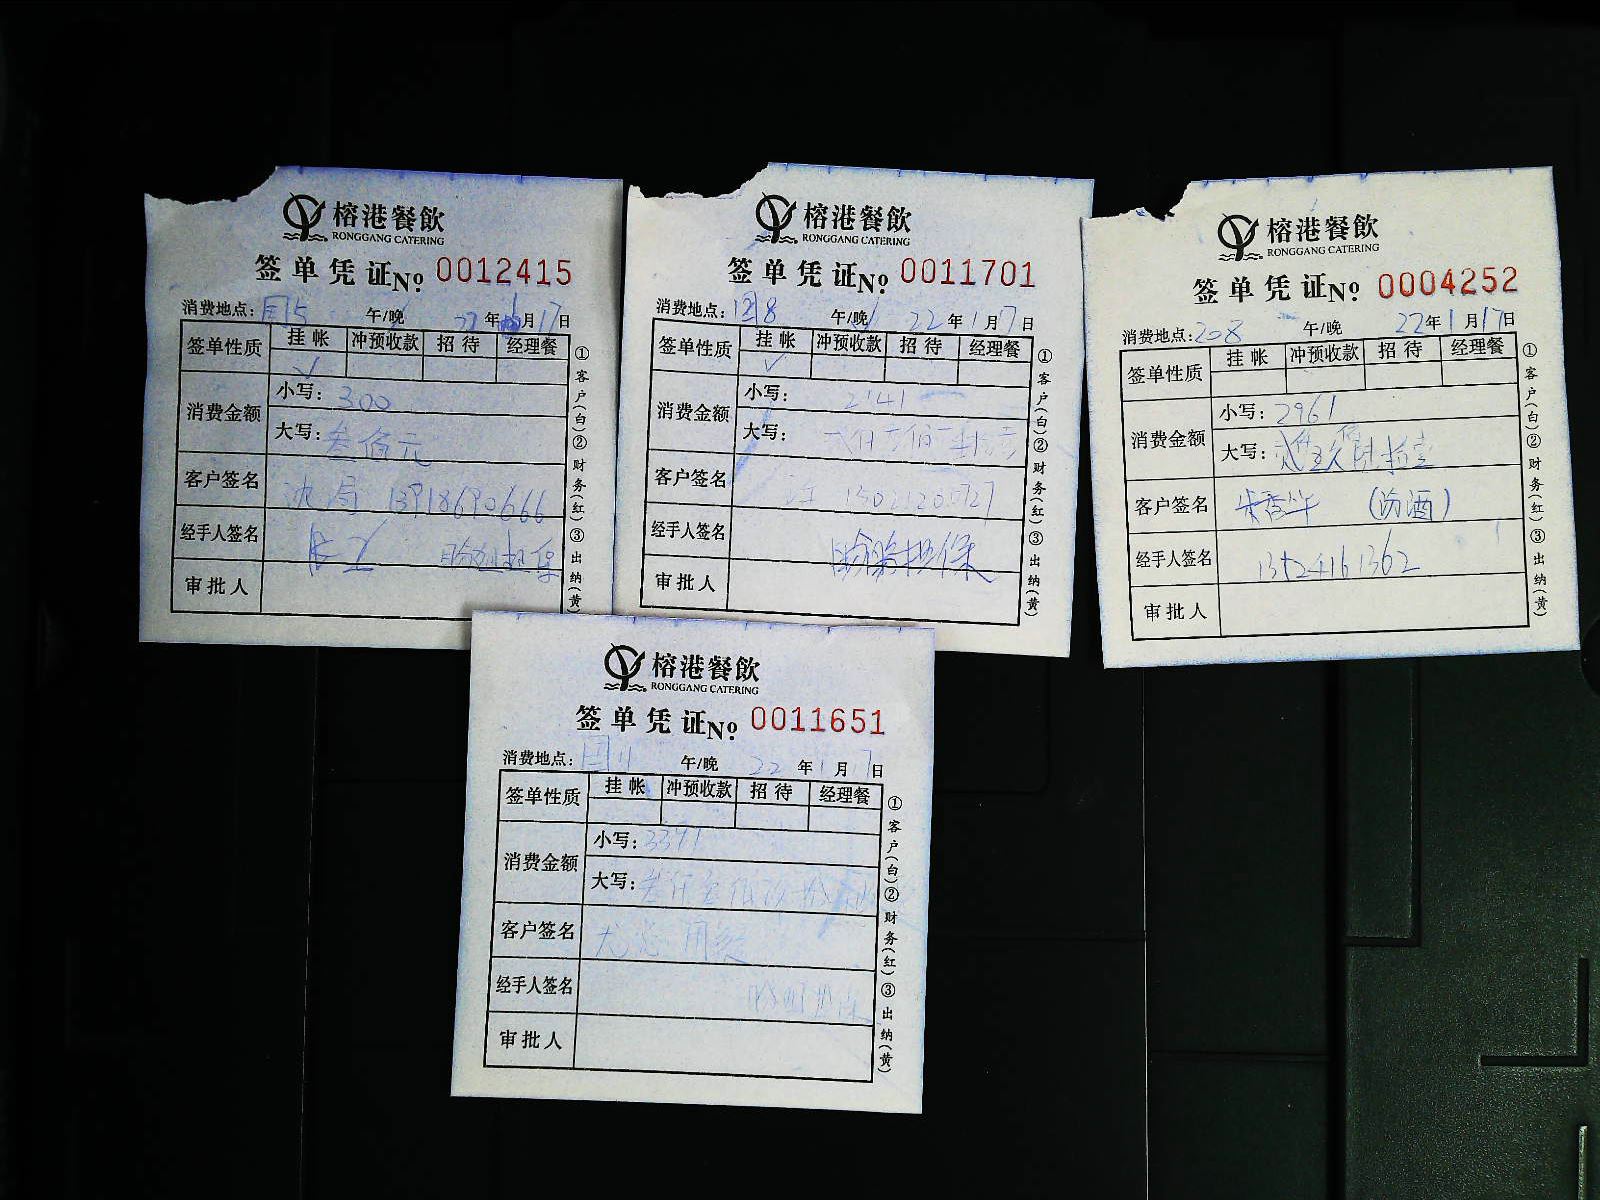 榕港餐飲
RONGGANG CATERING
签单凭证 No 0012415
消费地点: 国5 午/晚 22年 月17日
签单性质 挂帐 冲预收款 招待 经理餐
√
消费金额 小写: 300
大写: 叁佰元
客户签名 沈局 13918690666
经手人签名 担保
审批人
①客户(白)②财务(红)③出纳(黄)
榕港餐飲
RONGGANG CATERING
签单凭证 No 0011701
消费地点: 国8 午/晚 22年1月17日
签单性质 挂帐 冲预收款 招待 经理餐
√
消费金额 小写: 2141
大写:
客户签名
经手人签名 担保
审批人
①客户(白)②财务(红)③出纳(黄)
榕港餐飲
RONGGANG CATERING
签单凭证 No 0004252
消费地点: 208 午/晚 22年1月17日
签单性质 挂帐 冲预收款 招待 经理餐
消费金额 小写: 2961
大写:
客户签名 (汾酒)
经手人签名 13524161362
审批人
①客户(白)②财务(红)③出纳(黄)
榕港餐飲
RONGGANG CATERING
签单凭证 No 0011651
消费地点: 国11 午/晚 22年1月17日
签单性质 挂帐 冲预收款 招待 经理餐
消费金额 小写: 3391
大写:
客户签名
经手人签名 担保
审批人
①客户(白)②财务(红)③出纳(黄)